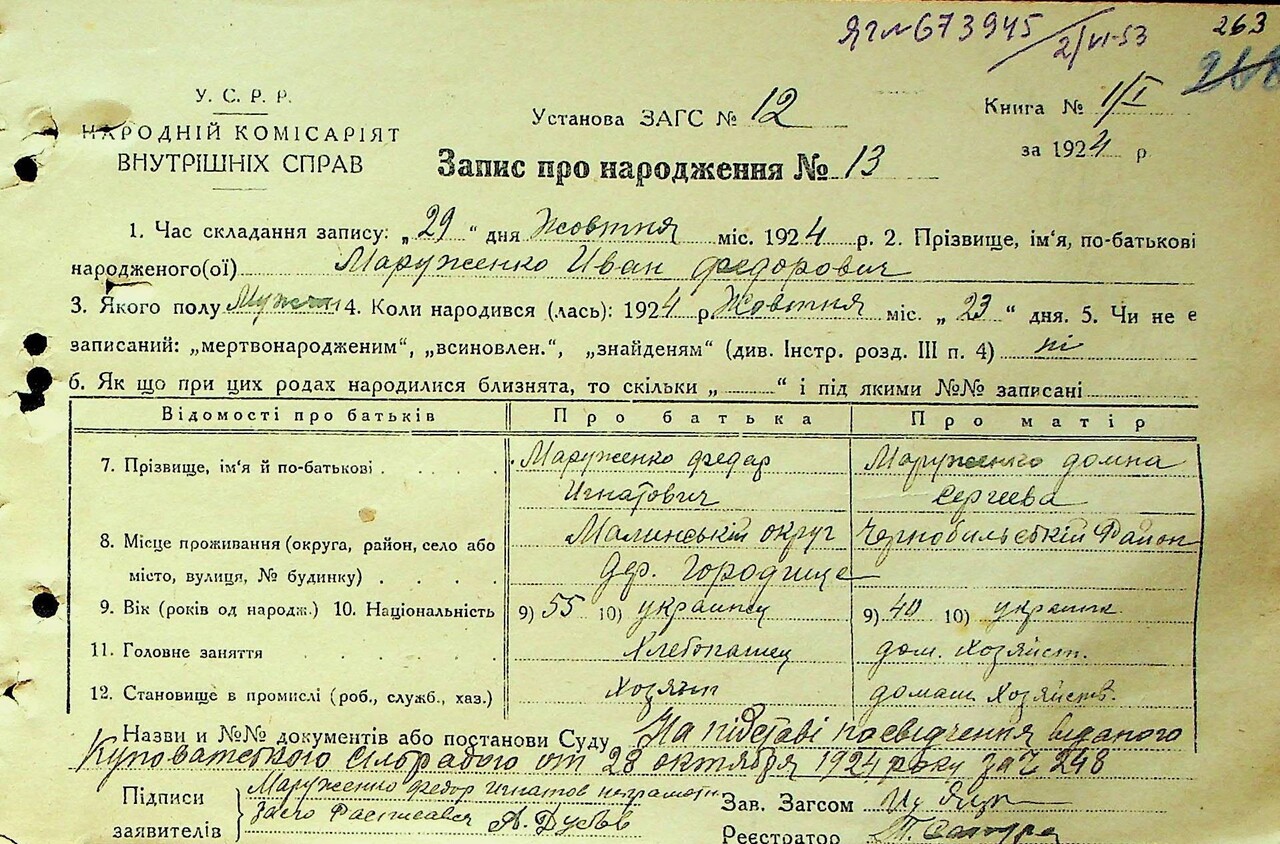 ЯГ № 673945 2/VI-53
263
У. С. Р. Р.
НАРОДНІЙ КОМІСАРІЯТ
ВНУТРІШНІХ СПРАВ
Установа ЗАГС № 12
Книга № 1/I
за 1924 р.
Запис про народження № 13
1. Час складання запису: „29“ дня Жовтня міс. 1924 р. 2. Прізвище, ім'я, по-батькові
народженого(ої) Маруженко Иван Федорович
3. Якого полу Мужчин 4. Коли народився (лась): 1924 р. Жовтня міс. „23“ дня. 5. Чи не є
записаний: „мертвонародженим“, „всиновлен.“, „знайденям“ (див. Інстр. розд. III п. 4) ні
6. Як що при цих родах народилися близнята, то скільки „ “ і під якими №№ записані
Відомості про батьків Про батька Про матір
7. Прізвище, ім'я й по-батькові Маруженко Федар Маруженко Домна
Игнатович Сергеева
8. Місце проживання (округа, район, село або Малинській округ Чернобильській Район
місто, вулиця, № будинку) дер. Городище
9. Вік (років од народж.) 10. Національність 9) 55 10) украинец 9) 40 10) украинк
11. Головне заняття Хлебопашец дом. хозяйст.
12. Становище в промислі (роб., служб., хаз.) Хозяин домаш хозяйств.
Назви и №№ документів або постанови Суду На підставі посвідчення віданого
Куповатского сільрадою от 28 октября 1924 року за № 248
Підписи Маруженко Федор Игнатов неграмотн. Зав. Загсом
заявителів за его Расписався А. Дубов Реєстратор